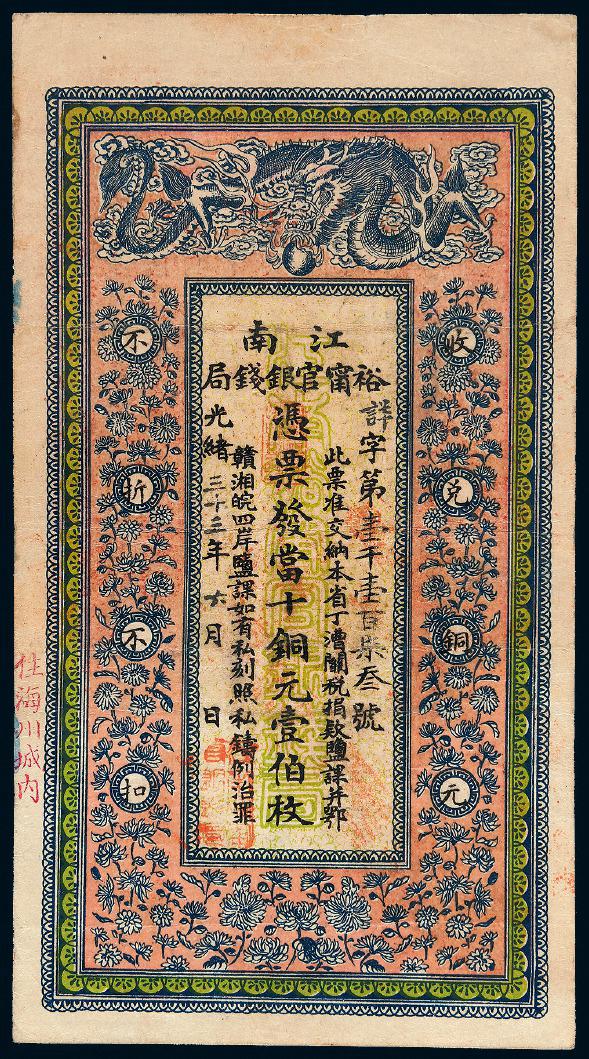 江南
裕甯官銀錢局
詳字第壹千壹百柒叁號
此票准交納本省丁漕關税捐款鹽課并鄂
憑票發當十銅元壹伯枚
贛湘皖四岸鹽課如有私刻照私鑄例治罪
光緒三十二年六月 日
收兑銅元
不折不扣
住海川城内